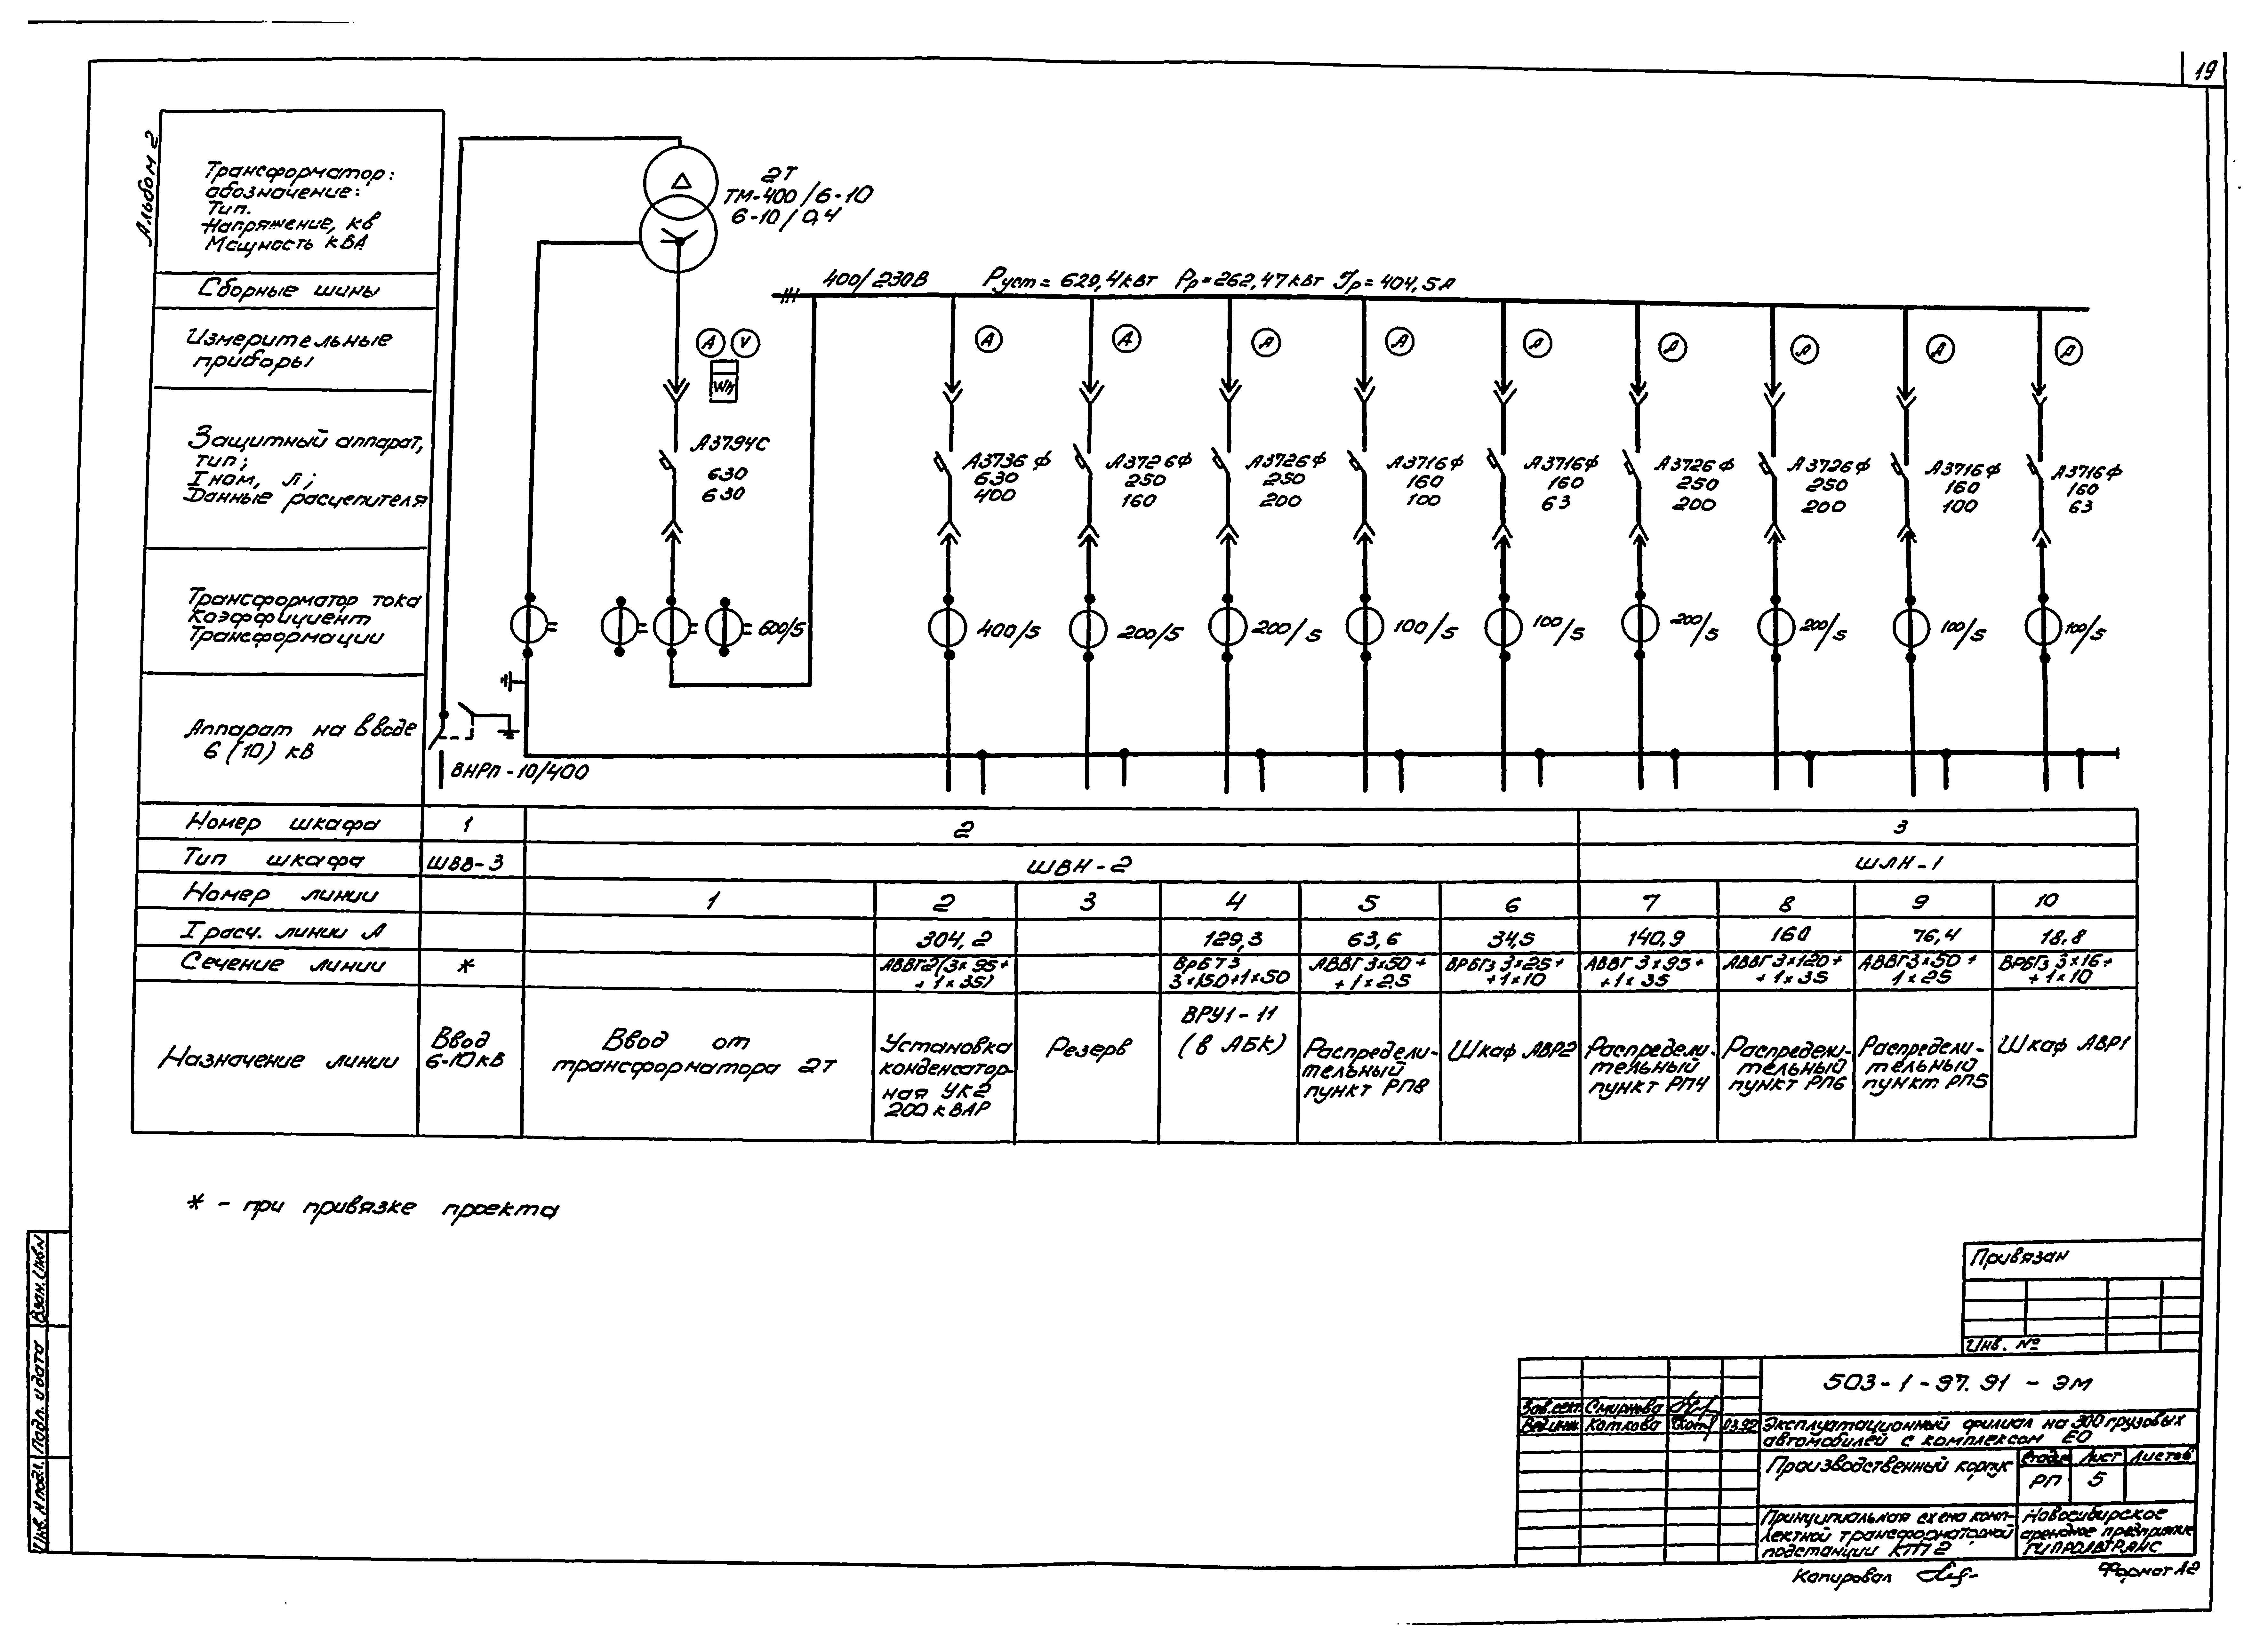 19
Альбом 2
Трансформатор:
обозначение:
Тип.
Напряжение, кв
Мощность кВА
2Т
ТМ-400/6-10
6-10/0,4
Сборные шины
400/230В Руст = 629,4квт Рр=262,47квт Jр=404,5А
Измерительные
приборы
А V
Wh
А А А А А А А А А
Защитный аппарат,
тип;
I ном, А;
Данные расцепителя
А3794С
630
630
А3736Ф
630
400
А3726Ф
250
160
А3726Ф
250
200
А3716Ф
160
100
А3716Ф
160
63
А3726Ф
250
200
А3726Ф
250
200
А3716Ф
160
100
А3716Ф
160
63
Трансформатор тока
Коэффициент
Трансформации
600/5 400/5 200/5 200/5 100/5 100/5 200/5 200/5 100/5 100/5
Аппарат на вводе
6 (10) кВ
ВНРп-10/400
Номер шкафа 1 2 3
Тип шкафа ШВВ-3 ШВН-2 ШЛН-1
Номер линии 1 2 3 4 5 6 7 8 9 10
I расч. линии А 304,2 129,3 63,6 34,5 140,9 160 76,4 18.8
Сечение линии *
АВВГ2(3×95+
+1×35)
ВРБГЗ
3×150+1×50
АВВГ 3×50+
+1×25
ВРБГз 3×25+
+1×10
АВВГ 3×95+
+1×35
АВВГ 3×120+
+1×35
АВВГ3×50+
1×25
ВРБГз 3×16+
+1×10
Назначение линии
Ввод
6-10кВ
Ввод от
трансформатора 2Т
Установка
конденсатор-
ная УК2
200 кВАР
Резерв
ВРУ1-11
(в АБК)
Распредели-
тельный
пункт РП8
Шкаф АВР2
Распредели-
тельный
пункт РП4
Распредели-
тельный
пункт РП6
Распредели-
тельный
пункт РП5
Шкаф АВР1
* - при привязке проекта
Взам. Инв.N
Подп. и дата
Инв. N подл.
Привязан
Инв. №
503-1-97.91-ЭМ
Зав.сект. Смирнова
Вед.инж. Коткова 03.92
Эксплуатационный филиал на 300 грузовых
автомобилей с комплексом ЕО
Производственный корпус
Стадия Лист Листов
РП 5
Принципиальная схема комп-
лектной трансформаторной
подстанции КТП2
Новосибирское
арендное предприятие
ГИПРОАВТОТРАНС
Копировал
Формат А2